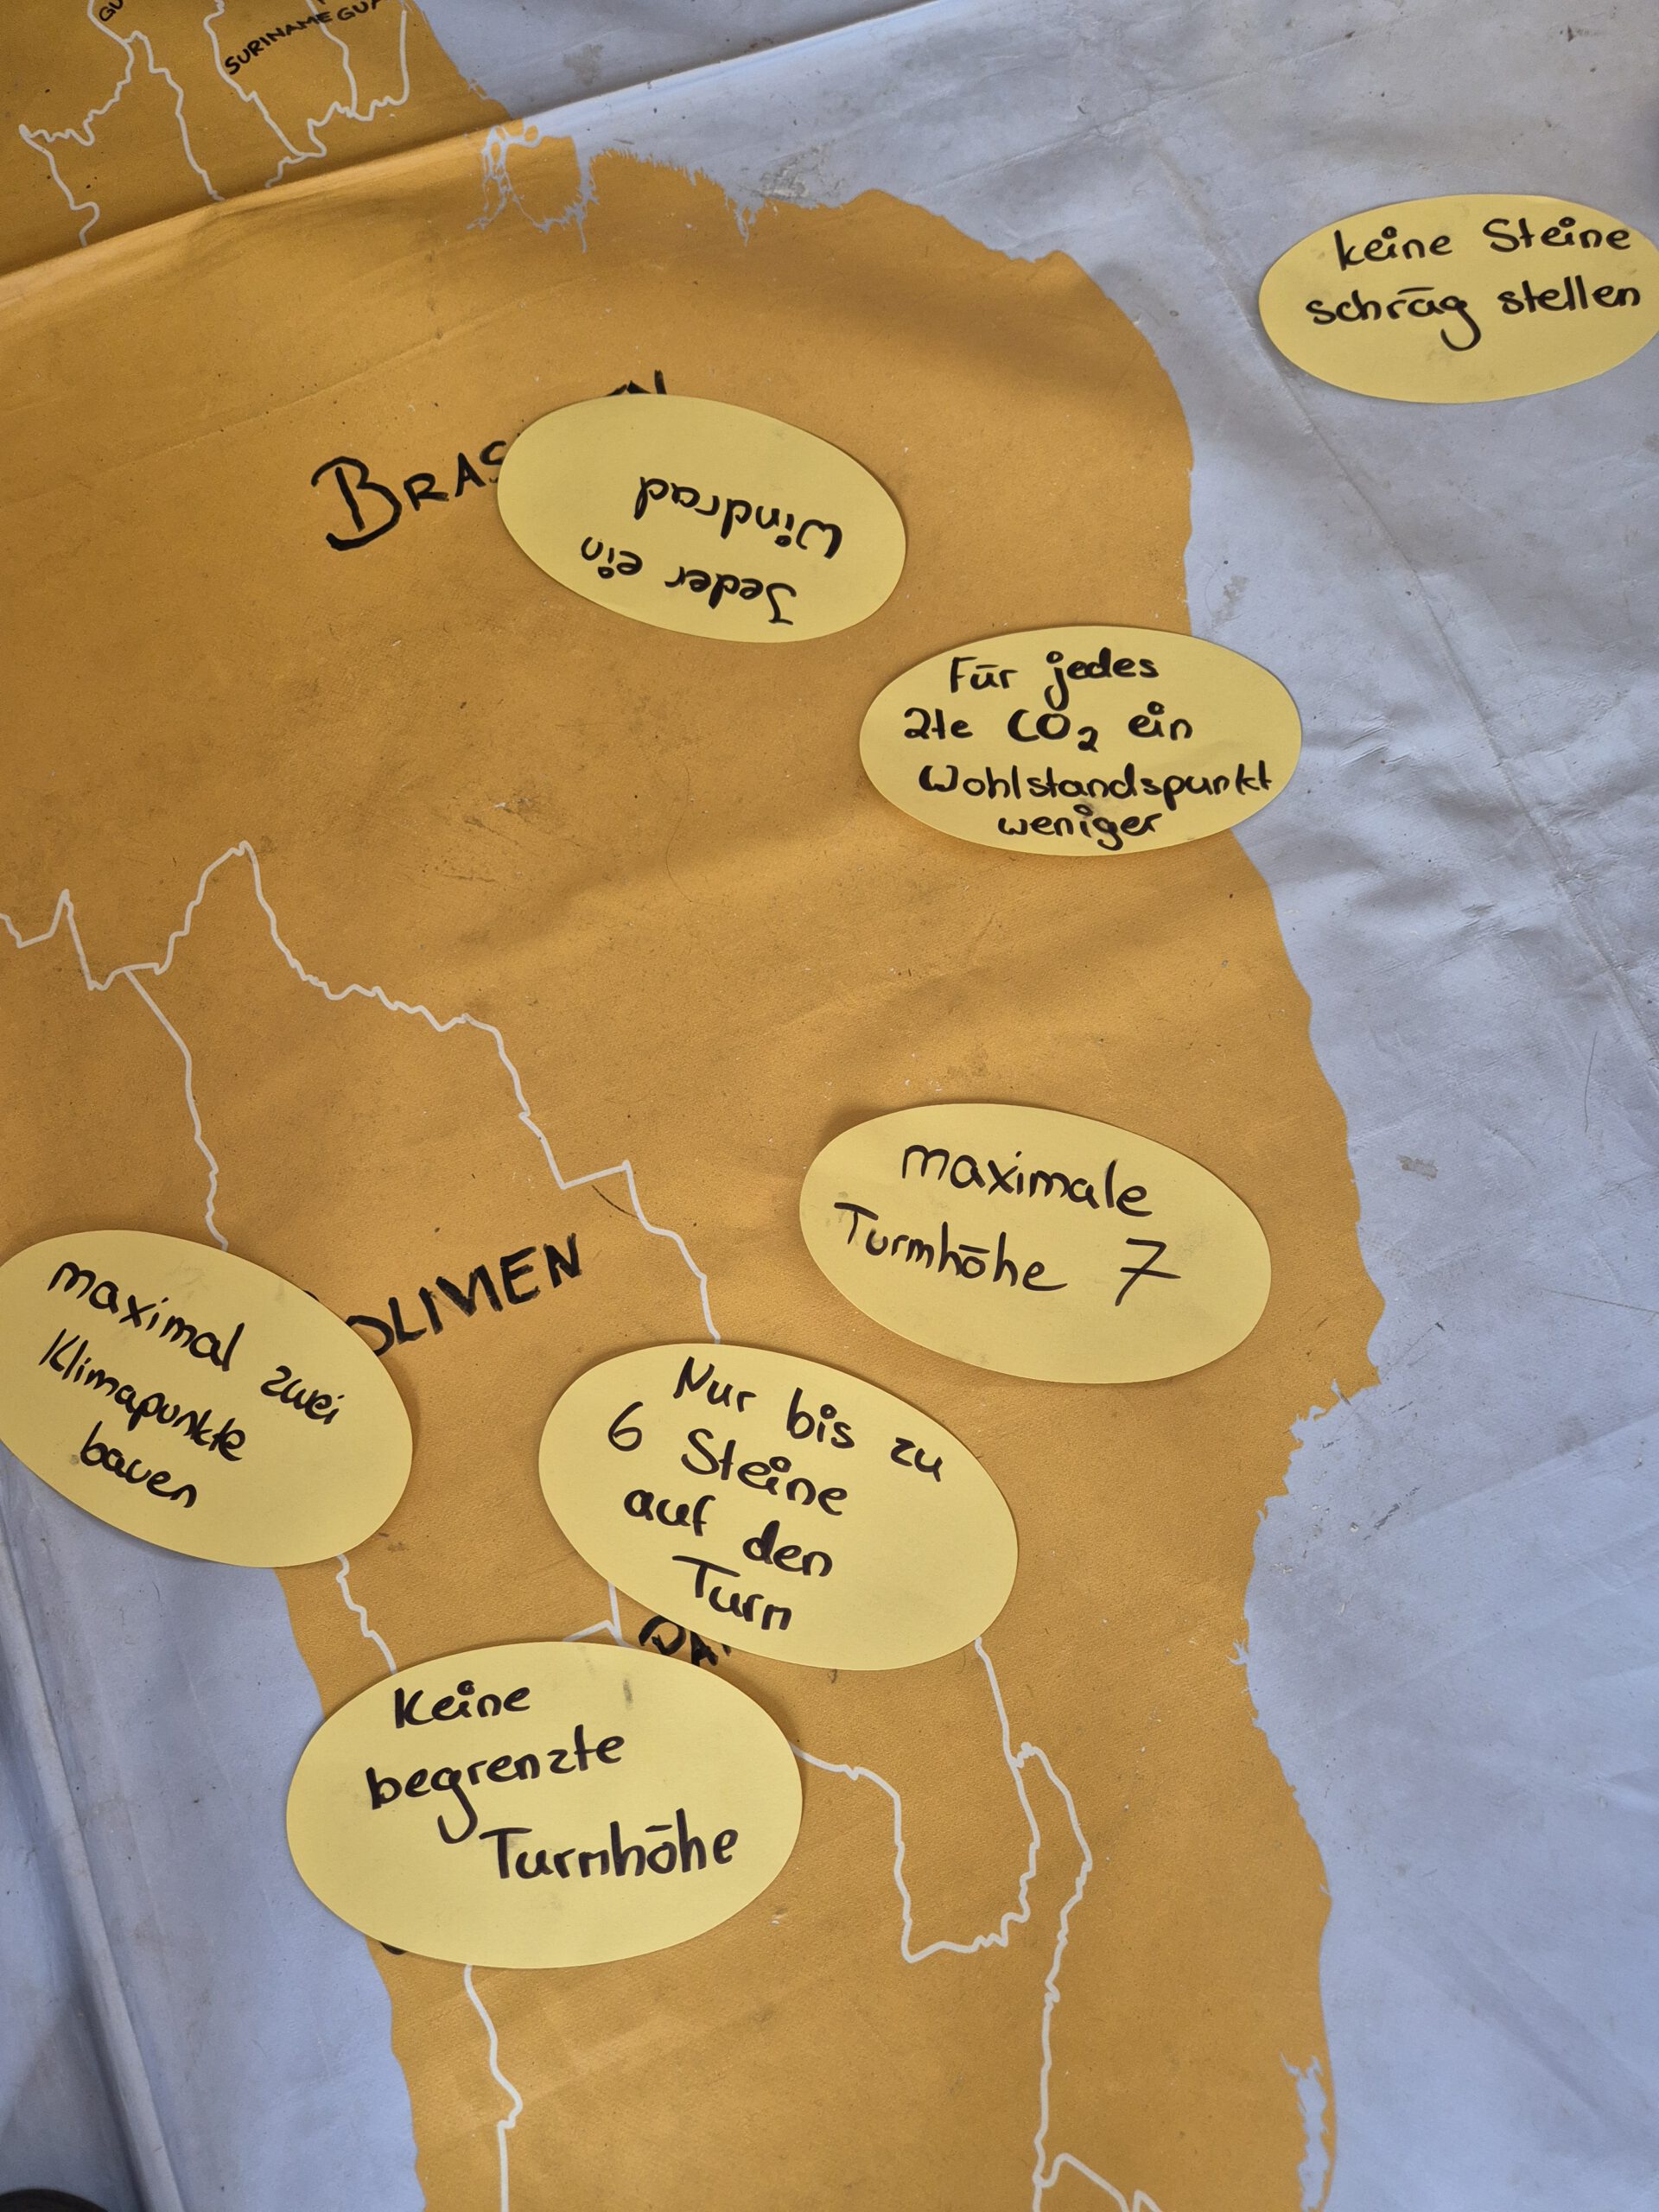 SURINAME
keine Steine
schräg stellen
BRAS
Jeder ein
Windrad
Für jedes
2te CO2 ein
Wohlstandspunkt
weniger
maximale
Turmhöhe 7
maximal zwei
Klimapunkte
bauen
OLIVIEN
Nur bis zu
6 Steine
auf den
Turm
Keine
begrenzte
Turmhöhe